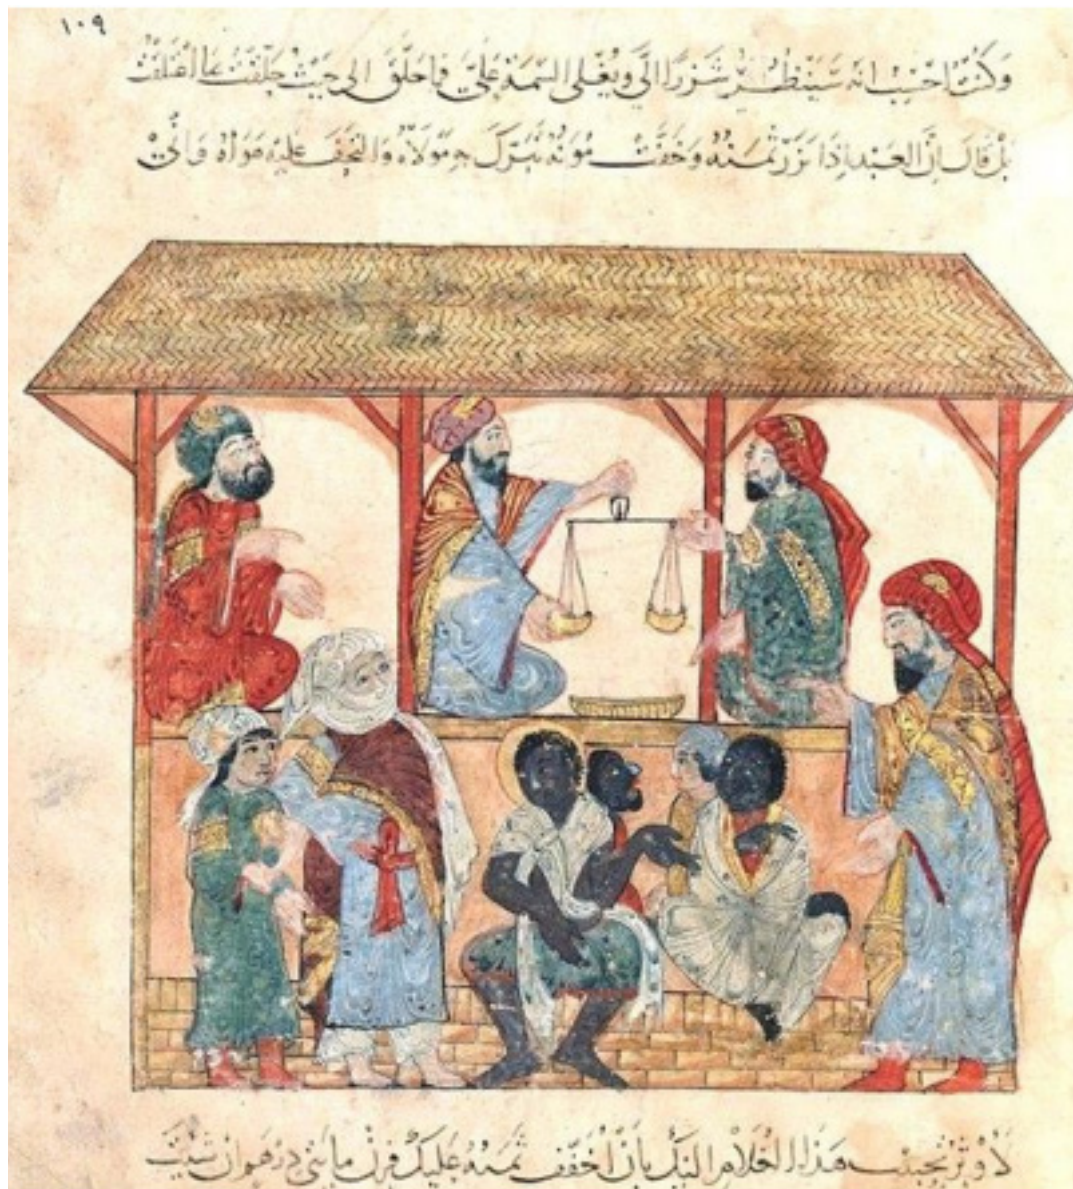 ١٠٩
وَكنتُ احْسِبُ انه سَيَنظُرُ شَزرًا الَيَّ ويُغلى السِّيمَة عَلَيَّ فما حَلَّقَ الى حَيثُ حَلَّقتُ
بَلْ قالَ اِنَّ العَبْدَ اِذا نَزَرَ ثمنُهُ وَخَفَّتْ مُوَنُهُ تَبَرَّكَ بِهِ مَوْلَاهُ وَالتَحَفَ عَلَيْهِ هَوَاهُ وَاِنِّيْ
لَاُوثِرُ تَحْبِيبَ هَذا الغُلَامِ اليكَ بِأنْ اُخَفِّفَ ثَمَنَهُ عَلَيكَ فَزِنْ مِائتى دِرْهَمٍ اِنْ شِئتَ